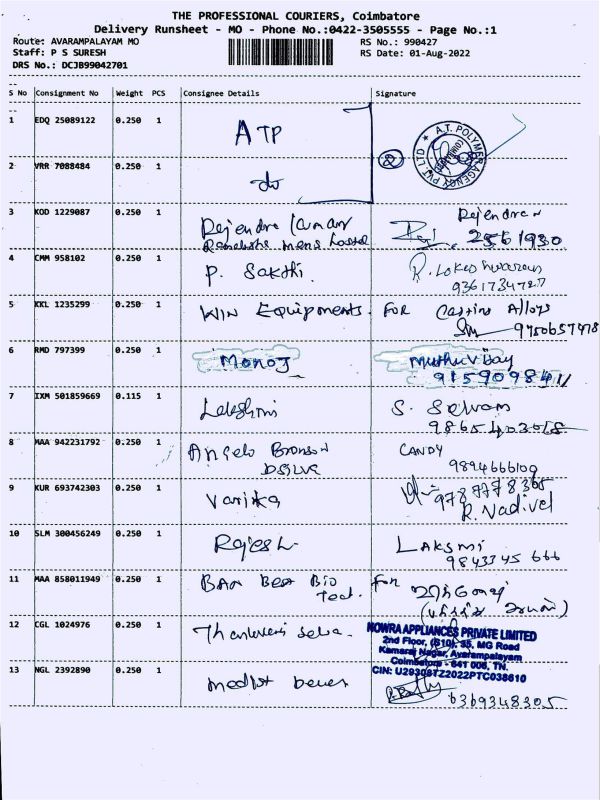 THE PROFESSIONAL COURIERS, Coimbatore
Delivery Runsheet - MO - Phone No.:0422-3505555 - Page No.:1
Route: AVARAMPALAYAM MO RS No.: 990427
Staff: P S SURESH RS Date: 01-Aug-2022
DRS No.: DCJB99042701
S No Consignment No Weight PCS Consignee Details Signature
1 EDQ 25089122 0.250 1 ATP
A.T. POLYMER AGENCY PVT. LTD
2 VRR 7088484 0.250 1 do
3 KOD 1229087 0.250 1 Rajendra Rajendran
mens hostel 2561930
4 CMM 958102 0.250 1 P. Sakthi. R. Lokeshwaran
9361734727
5 KKL 1235299 0.250 1 WIN Equipments. FOR Casting Alloys
9750657778
6 RMD 797399 0.250 1 MONOJ Muthu Vijay
9159098411
7 IXM 501859669 0.115 1 Lakshmi S. Selvam
9865403018
8 MAA 942231792 0.250 1 Angelo Bronson CANDY
9894666109
9 KUR 693742303 0.250 1 Varika 9787778365
R. Vadivel
10 SLM 300456249 0.250 1 Rajesh LAKSMI
9843345 666
11 MAA 858011949 0.250 1 Best Bio For
Tech.
12 CGL 1024976 0.250 1 selva. NOWRA APPLIANCES PRIVATE LIMITED
2nd Floor, (S10), 35, MG Road
Kamaraj Nagar, Avarampalayam
Coimbatore - 641 006, TN.
CIN: U29308TZ2022PTC038610
13 NGL 2392890 0.250 1 6369348305